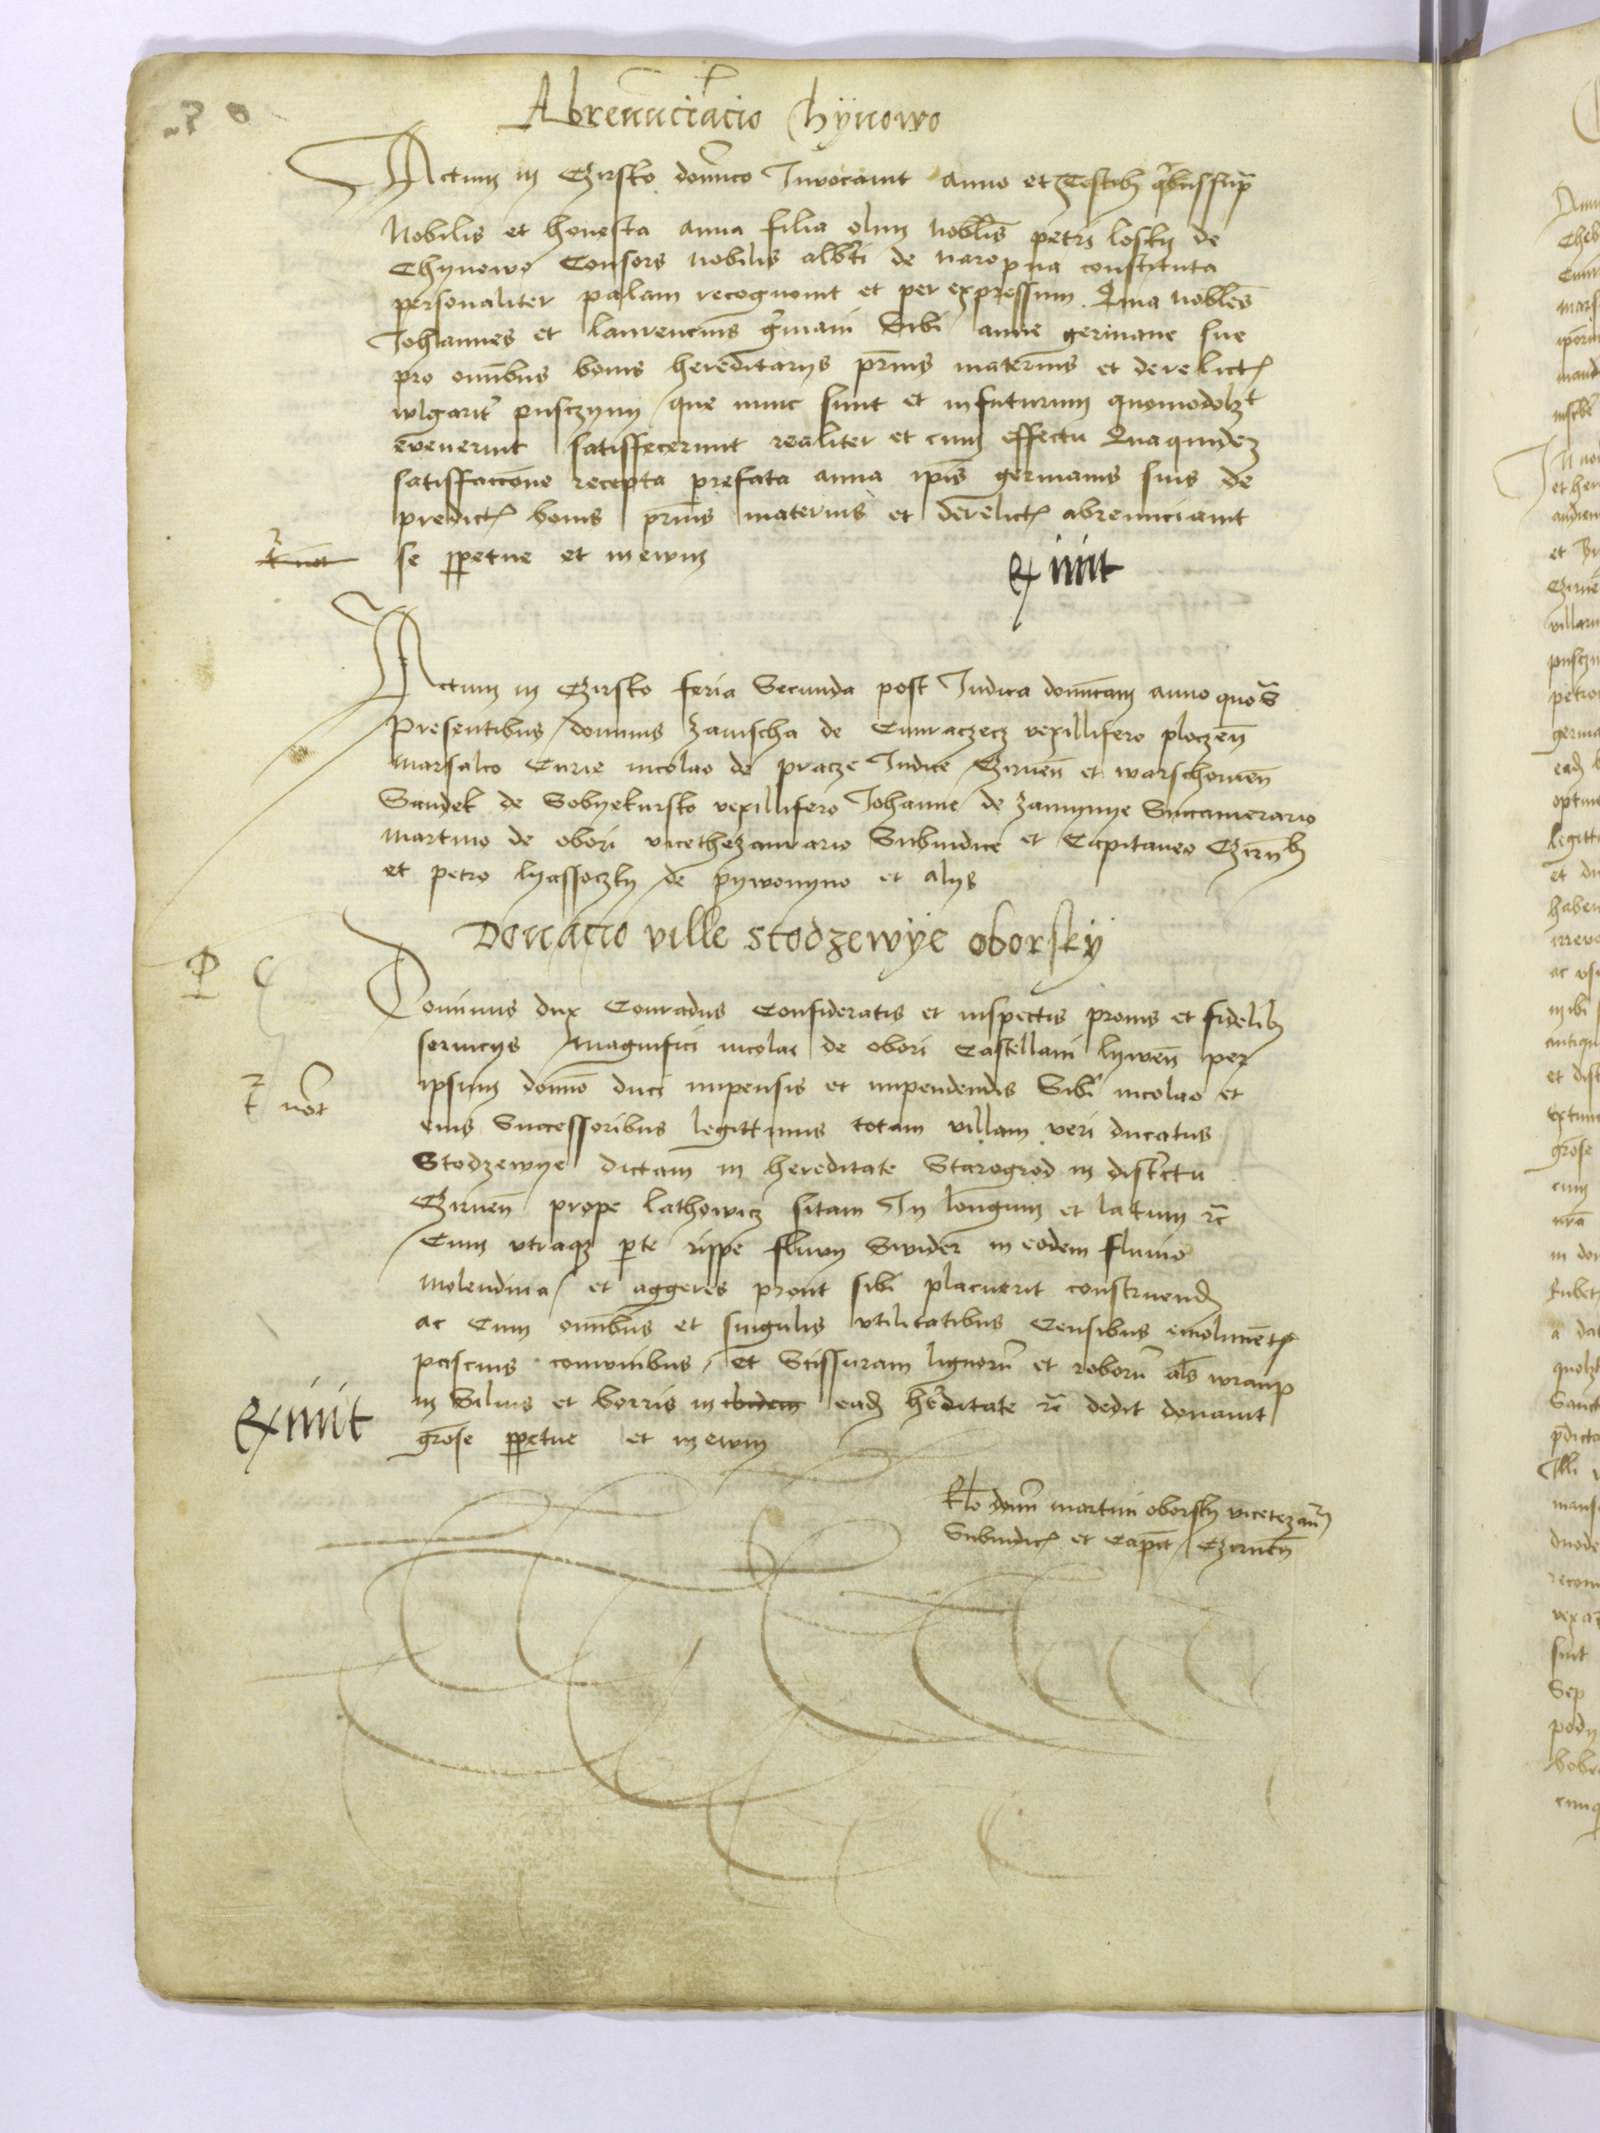 Abrenunciacio Chÿnowo
Actum in Czirsko domico Invocavit anno et Testibȝ qͥbus supͣ
Nobilis et honesta anna filia olim nobliˢ petri losky de
Chynowo Consors nobilis albͭi de naropna constituta
personaliter palam recognovit et per expressum Quia nobles
Johannes et laurencius gͬmani Sibi anne germane sue
pro omibus bonis hereditarijs pr̄nis maternis et derelictꝭ
wlgaritͬ pusczyny que nunc sunt et in futurum quomodolȝt
evenerint satisfecerunt realiter et cum effectu Quaquidez
satisfaccone recepta prefata anna ipis germanis suis de
predictꝭ bonis pr̄nis maternis et derelictꝭ abrenunciavit
se ꝑpetue et in ewm
Exivit
Actum in Czirsko feria Secunda post Judica domicam anno quo sͣ
Presentibus dominis Zawischa de Cunraczecz vexillifero ploczen̄
marsalco Curie nicolao de pracze Judice Czirnen̄ et warschovien̄
Sandek de Sobyekursko vexillifero Johanne de zamynye Succamerario
martino de obori vicethezaurario Subiudice et Capitaneo Czirnȝ
et petro lyassoczky de pywonyno et alijs
Donacio ville stodzewÿe oborskÿ
Dominus dux Conradus Consideratis et inspectis pronis et fidelibȝ
servicijs Magnifici nicolai de obori Castellani lywen̄ per
not
ipsum domo duci impensis et impendendis Sibi nicolao et
eius Successoribus legittimis totam villam veri ducatus
Stodzewye dictam in hereditate Starogrod in distͬctu
Czirnen̄ prope lathowicz sitam In longum et latum rc̄
Cum utraqȝ pͬte rippe fluvy Swider in eodem fluvio
molendina et aggeres prout sibi placuerit construend
ac Cum omibus et singulis utilitatibus Censibus emolimētꝭ
pascuis comunibus et Scissuram lignorū et roborū als wramp
Exivit
in Silvis et borris in ibidem ead hͬeditate rc̄ dedit donavit
grose ꝑpetue et in ewm
Rlo domi martini oborsky vicetezaurͬ
Subiudicꝭ et Capͭ Czirnen̄